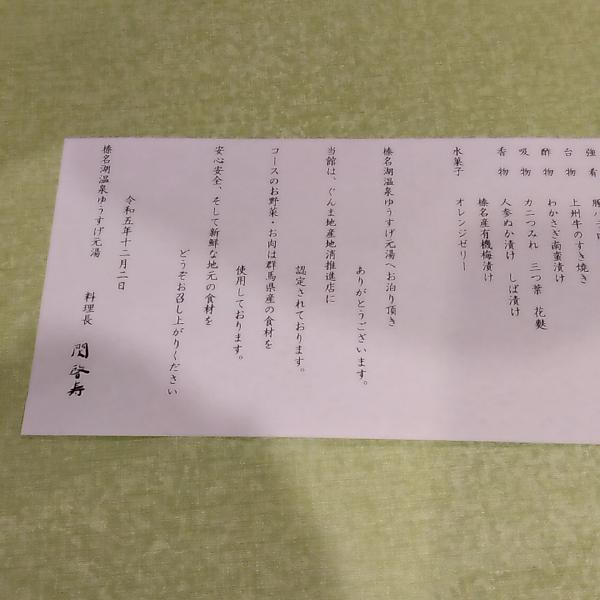 強肴
台物 上州牛のすき焼き
酢物 わかさぎ南蛮漬け
吸物 カニつみれ 三つ葉 花麩
香物 人参ぬか漬け しば漬け
榛名産有機梅漬け
水菓子 オレンジゼリー
榛名湖温泉ゆうすげ元湯へお泊り頂き
ありがとうございます。
当館は、ぐんま地産地消推進店に
認定されております。
コースのお野菜・お肉は群馬県産の食材を
使用しております。
安心安全、そして新鮮な地元の食材を
どうぞお召し上がりください
令和五年十二月二日
榛名湖温泉ゆうすげ元湯
料理長